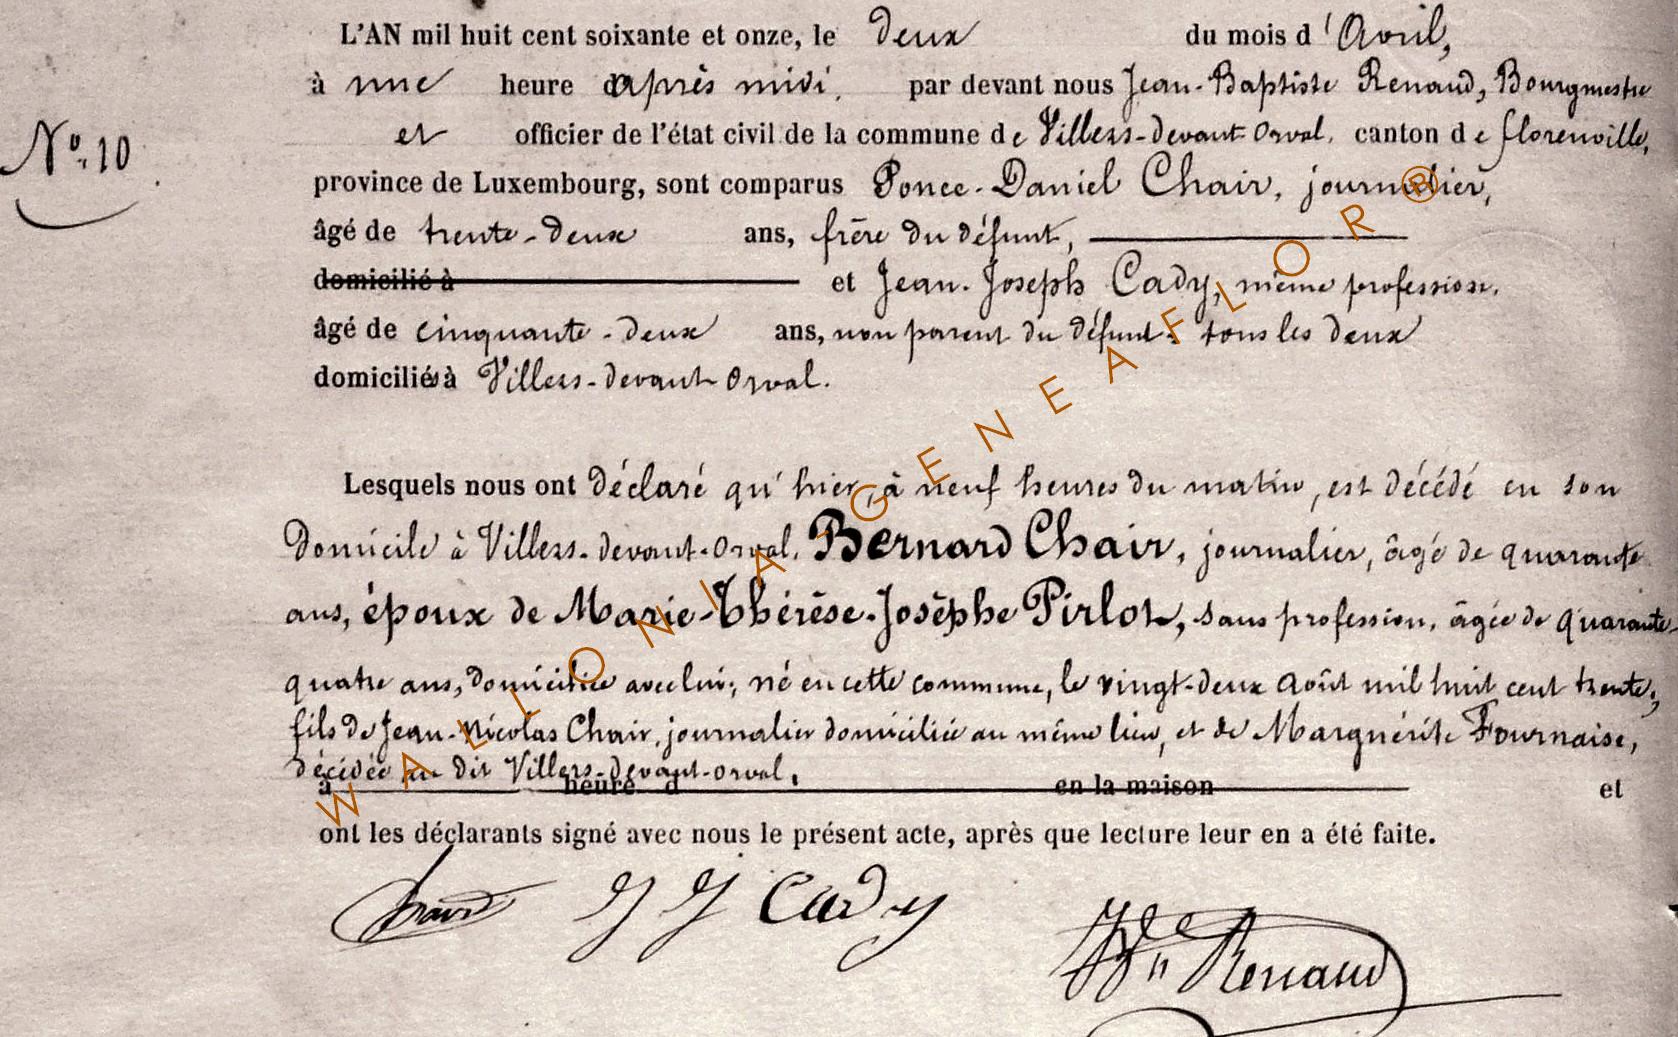 L'AN mil huit cent soixante et onze, le deux du mois d'Avril,
à une heure après midi, par devant nous Jean-Baptiste Renaud, Bourgmestre
et officier de l'état civil de la commune de Villers-devant-Orval, canton de florenville,
N° 10
province de Luxembourg, sont comparus Ponce-Daniel Chair, journalier,
âgé de trente-deux ans, frère du défunt,
domicilié à et Jean-Joseph Cady, même profession,
âgé de cinquante-deux ans, non parent du défunt, tous les deux
domiciliés à Villers-devant-Orval.
Lesquels nous ont déclaré qu'hier, à neuf heures du matin, est décédé en son
Domicile à Villers-devant-Orval, Bernard Chair, journalier, âgé de quarante
ans, époux de Marie-Thérèse-Josèphe Pirlot, sans profession, âgée de quarante
quatre ans, domiciliée avec lui; né en cette commune, le vingt-deux Août mil huit cent trente,
fils de Jean-Nicolas Chair, journalier domiciliée au même lieu, et de Marguérite Fournaise,
décédée au dit Villers-devant-Orval.
à heure d en la maison et
ont les déclarants signé avec nous le présent acte, après que lecture leur en a été faite.
J J Cady
Renaud
WALLONIA-GENEAFLOR®